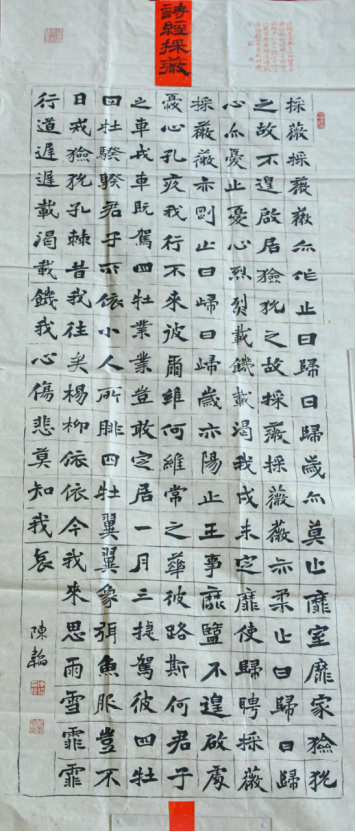 詩經採薇
採薇採薇薇亦作止曰歸曰歸歲亦莫止靡室靡家獫狁
之故不遑啟居獫狁之故採薇採薇薇亦柔止曰歸曰歸
心亦憂止憂心烈烈載饑載渴我戍未定靡使歸聘採薇
採薇薇亦剛止曰歸曰歸歲亦陽止王事靡盬不遑啟處
憂心孔疚我行不來彼爾維何維常之華彼路斯何君子
之車戎車既駕四牡業業豈敢定居一月三捷駕彼四牡
四牡騤騤君子所依小人所腓四牡翼翼象弭魚服豈不
日戒獫狁孔棘昔我往矣楊柳依依今我來思雨雪霏霏
行道遲遲載渴載饑我心傷悲莫知我哀
陳